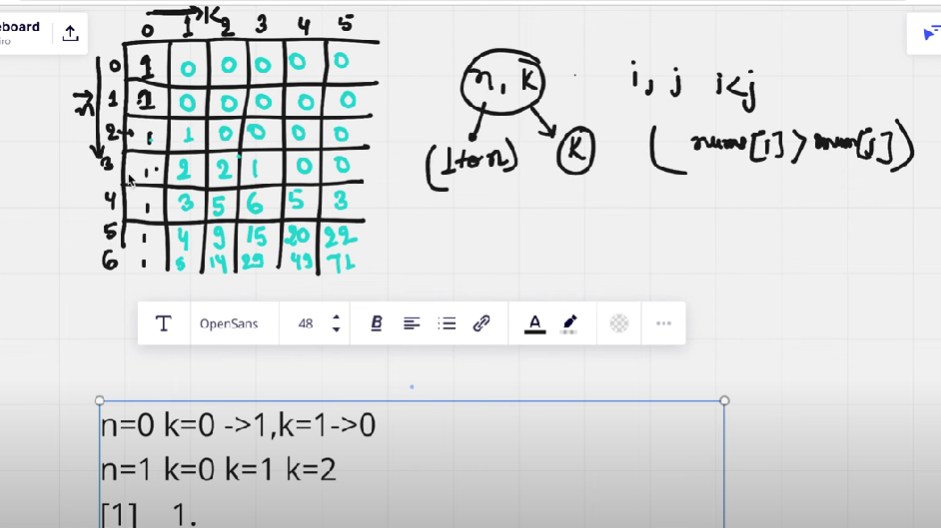 eboard
iro
→ K
0 1 2 3 4 5
0 1 0 0 0 0 0
1 1 0 0 0 0 0
2 1 1 0 0 0 0
3 1 2 2 1 0 0
4 1 3 5 6 5 3
5 1 4 9 15 20 22
6 1 5 14 29 49 71
n
n, K
(1 to n) K
i, j i<j
( nums[i] > num[j] )
T OpenSans 48 B A
n=0 k=0 ->1,k=1->0
n=1 k=0 k=1 k=2
[1] 1.